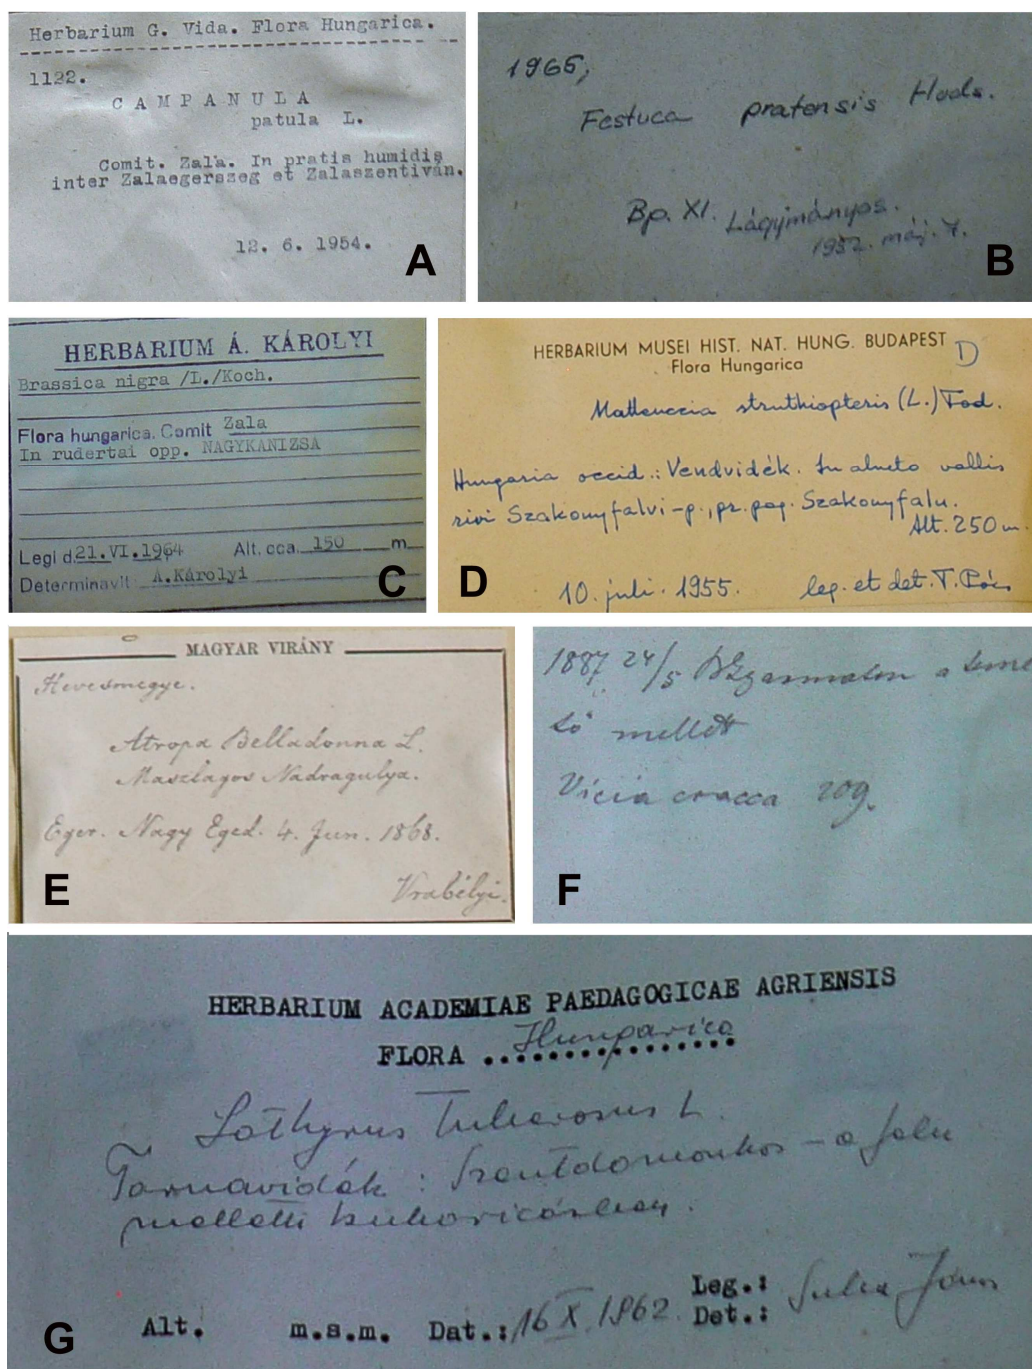 Herbarium G. Vida. Flora Hungarica.
1122.
CAMPANULA
patula L.
Comit. Zala. In pratis humidis
inter Zalaegerszeg et Zalaszentiván.
12. 6. 1954.
A
1965,
Festuca pratensis Huds.
Bp. XI. Lágymányos.
1952. máj. 7.
B
HERBARIUM Á. KÁROLYI
Brassica nigra /L./Koch.
Flora hungarica. Comit Zala
In rudertai opp. NAGYKANIZSA
Legi d. 21.VI.1964 Alt. cca. 150 m
Determinavit Á.Károlyi
C
HERBARIUM MUSEI HIST. NAT. HUNG. BUDAPEST D
Flora Hungarica
Matteuccia struthiopteris (L.) Tod.
Hungaria occid.: Vendvidék. In alneto vallis
rivi Szakonyfalvi-p., pr. pag. Szakonyfalu.
Alt. 250 m.
10. juli. 1955. leg. et det. T. Pócs
D
MAGYAR VIRÁNY
Hevesmegye.
Atropa Belladonna L.
Maszlagos Nadragulya.
Eger. Nagy Eged. 4. Jun. 1868.
Vrabélyi.
E
1887 24/5 a teme
tő mellett
Vicia cracca 209.
F
HERBARIUM ACADEMIAE PAEDAGOGICAE AGRIENSIS
FLORA Hungarica
Lathyrus tuberosus L.
Tarnavidék: Szentdomonkos – a falu
melletti kukoricásban.
Leg.:
Alt. m.s.m. Dat.: 16 X. 1962. Det.: Suba János
G